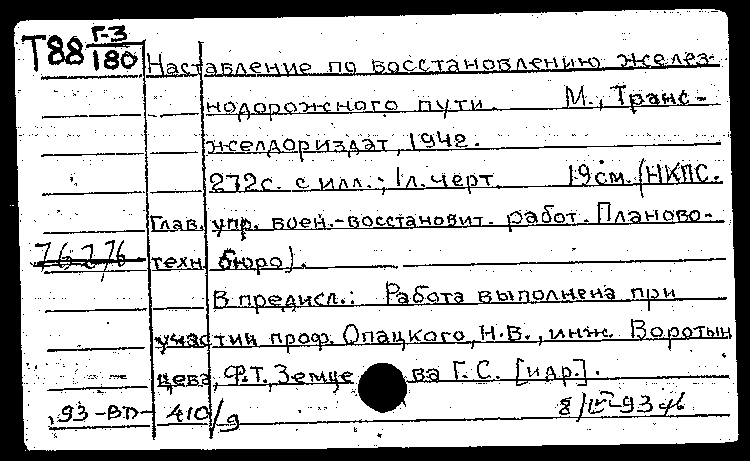 Т88 Г-3/180
Наставление по восстановлению желез-
нодорожного пути. М., Транс-
желдориздат, 1942.
272с. с илл.; 1л. черт. 19 см. (НКПС.
Глав. упр. воен.-восстановит. работ. Планово-
76276 техн. бюро).
В предисл.: Работа выполнена при
участии проф. Опацкого, Н.В., инж. Воротын
цева, Ф.Т., Земце ва Г.С. [и др.].
93-ВП- 410/9